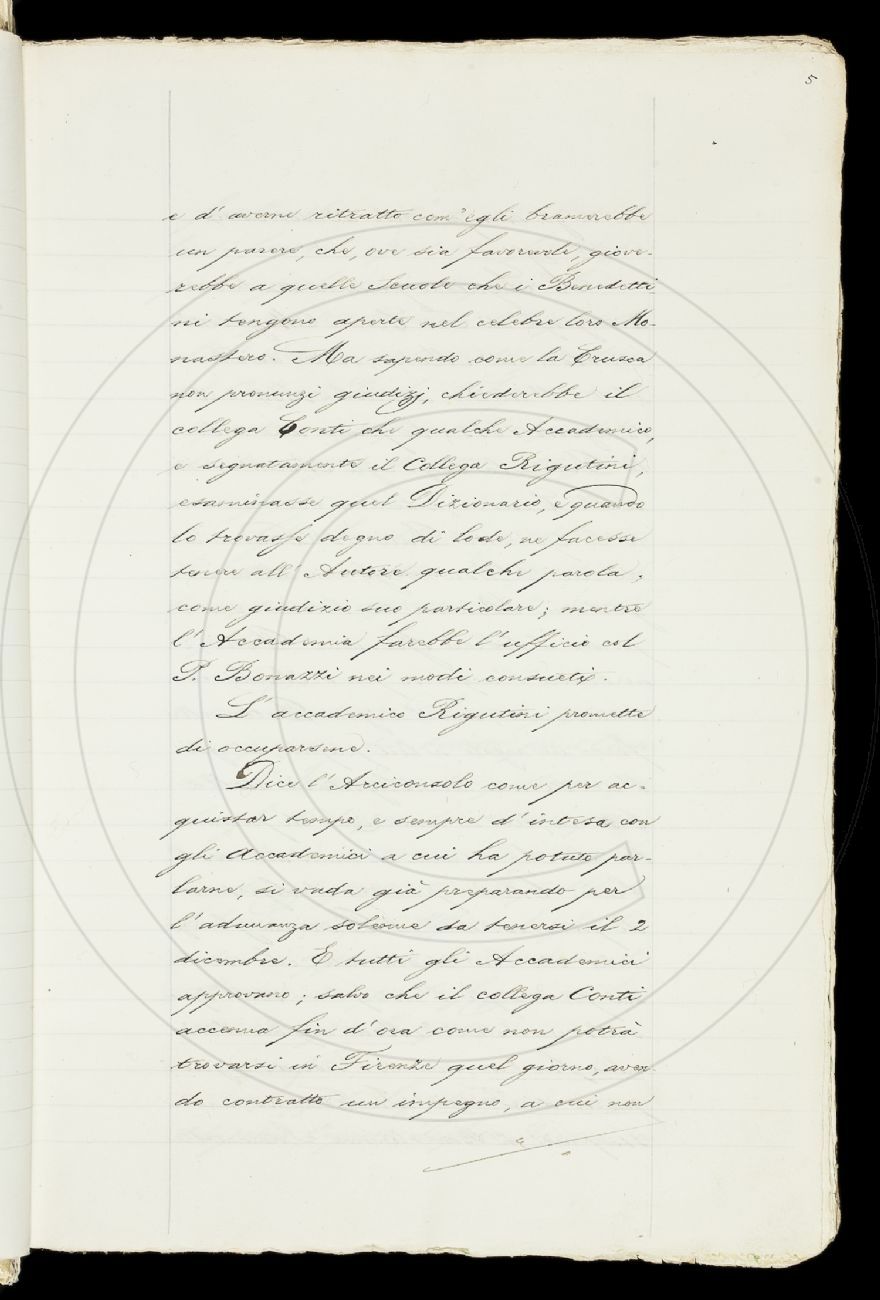 5
e d'averne ritratto com'egli bramerebbe
un parere, che, ove sia favorevole, giove-
rebbe a quelle Scuole che i Benedetti
ni tengono aperte nel celebre loro Mo-
nastero. Ma sapendo come la Crusca
non pronunzi giudizj, chiederebbe il
collega Conti che qualche Accademico,
e segnatamente il Collega Rigutini,
esaminasse quel Dizionario, e quando
lo trovasse degno di lode, ne facesse
tenere all'Autore qualche parola,
come giudizio suo particolare; mentre
l'Accademia farebbe l'ufficio col
P. Bonazzi nei modi consueti.
L'accademico Rigutini promette
di occuparsene.
Dice l'Arciconsolo come per ac-
quistar tempo, e sempre d'intesa con
gli Accademici a cui ha potuto par-
larne, si vada già preparando per
l'adunanza solenne da tenersi il 2
dicembre. E tutti gli Accademici
approvano; salvo che il collega Conti
accenna fin d'ora come non potrà
trovarsi in Firenze quel giorno, aven-
do contratto un impegno, a cui non